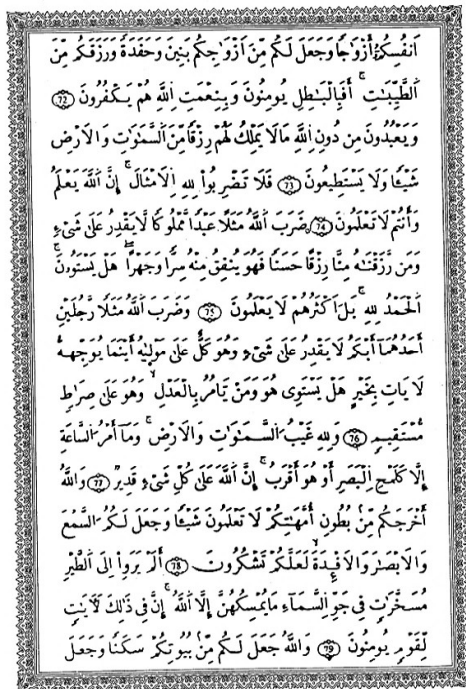 اَنفُسِكُمُۥٓ أَزْوَٰجًا وَجَعَلَ لَكُم مِّنَ اَزْوَٰجِكُم بَنِينَ وَحَفَدَةً وَرَزَقَكُم مِّنَ
اَلطَّيِّبَٰتِ أَفَبِالْبَٰطِلِ يُومِنُونَ وَبِنِعْمَتِ اِللَّهِ هُمْ يَكْفُرُونَ 72
وَيَعْبُدُونَ مِن دُونِ اِللَّهِ مَا لَا يَمْلِكُ لَهُمْ رِزْقًا مِّنَ اَلسَّمَٰوَٰتِ وَالَارْضِ
شَيْـًٔا وَلَا يَسْتَطِيعُونَ 73 فَلَا تَضْرِبُوا۟ لِلهِ اِلَامْثَالَ إِنَّ اَللَّهَ يَعْلَمُ
وَأَنتُمْ لَا تَعْلَمُونَ 74 ضَرَبَ اَللَّهُ مَثَلًا عَبْدًا مَّمْلُوكًا لَّا يَقْدِرُ عَلَىٰ شَيْءٍ
وَمَن رَّزَقْنَٰهُ مِنَّا رِزْقًا حَسَنًا فَهُوَ يُنفِقُ مِنْهُ سِرًّا وَجَهْرًا هَلْ يَسْتَوُۥنَ
اَلْحَمْدُ لِلهِ بَلَ اَكْثَرُهُمْ لَا يَعْلَمُونَ 75 وَضَرَبَ اَللَّهُ مَثَلًا رَّجُلَيْنِ
أَحَدُهُمَآ أَبْكَمُ لَا يَقْدِرُ عَلَىٰ شَيْءٍ وَهُوَ كَلٌّ عَلَىٰ مَوْلَىٰهُ أَيْنَمَا يُوَجِّههُّ
لَا يَاتِ بِخَيْرٍ هَلْ يَسْتَوِى هُوَ وَمَنْ يَّامُرُ بِالْعَدْلِ وَهُوَ عَلَىٰ صِرَٰطٍ
مُّسْتَقِيمٍ 76 وَلِلهِ غَيْبُ اُلسَّمَٰوَٰتِ وَالَارْضِ وَمَآ أَمْرُ اُلسَّاعَةِ
إِلَّا كَلَمْحِ اِلْبَصَرِ أَوْ هُوَ أَقْرَبُ إِنَّ اَللَّهَ عَلَىٰ كُلِّ شَيْءٍ قَدِيرٌ 77 وَاللَّهُ
أَخْرَجَكُم مِّنۢ بُطُونِ أُمَّهَٰتِكُمْ لَا تَعْلَمُونَ شَيْـًٔا وَجَعَلَ لَكُمُ اُلسَّمْعَ
وَالَابْصَٰرَ وَالَافْـِٕدَةَ لَعَلَّكُمْ تَشْكُرُونَ 78 أَلَمْ يَرَوِا۟ اِلَى اَلطَّيْرِ
مُسَخَّرَٰتٍ فِي جَوِّ اِلسَّمَآءِ مَا يُمْسِكُهُنَّ إِلَّا اَللَّهُ إِنَّ فِي ذَٰلِكَ لَأٓيَٰتٍ
لِّقَوْمٍ يُومِنُونَ 79 وَاللَّهُ جَعَلَ لَكُم مِّنۢ بُيُوتِكُمْ سَكَنًا وَجَعَلَ